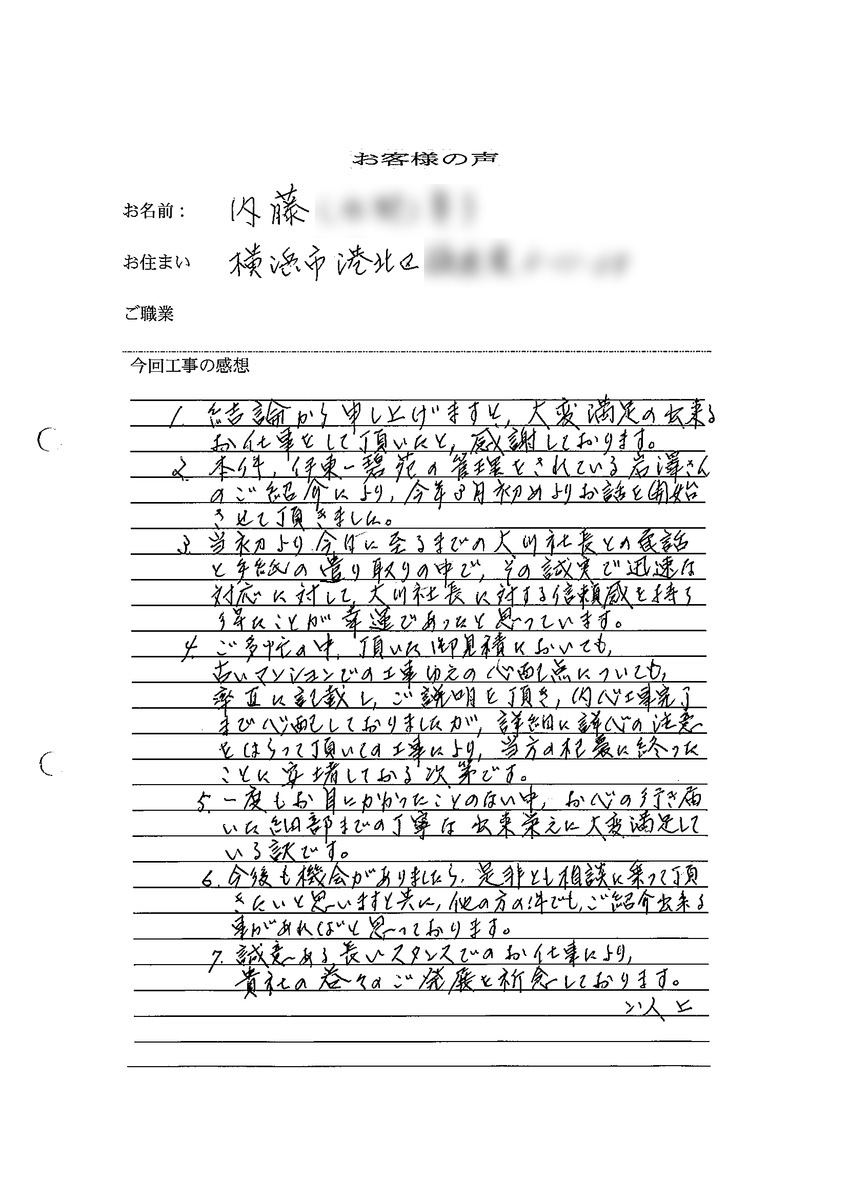 お客様の声
お名前： 内藤
お住まい 横浜市港北区
ご職業
今回工事の感想
1. 結論から申し上げますと、大変満足の出来る
お仕事をして頂いたと、感謝しております。
2. 本件、伊東一碧苑の管理をされている岩澤さん
のご紹介により、今年3月初めよりお話を開始
させて頂きました。
3. 当初より今日に至るまでの大川社長との電話
と手紙の遣り取りの中で、その誠実で迅速な
対応に対して、大川社長に対する信頼感を持ち
得たことが幸運であったと思っています。
4. ご多忙の中、頂いた御見積においても、
古いマンションでの工事ゆえの心配点についても、
率直に記載し、ご説明を頂き、内心工事完了
まで心配しておりましたが、詳細に の注意
をはらって頂いての工事により、当方の杞憂に終った
ことに安堵しておる次第です。
5. 一度もお目にかかったことのない中、お心の行き届
いた細部までの丁寧な出来栄えに大変満足して
いる訳です。
6. 今後も機会がありましたら、是非とも相談に乗って頂
きたいと思いますと共に、他の方の件でも、ご紹介出来る
事があればと思っております。
7. 誠意ある長いスタンスでのお仕事により、
貴社の益々のご発展を祈念しております。
以上